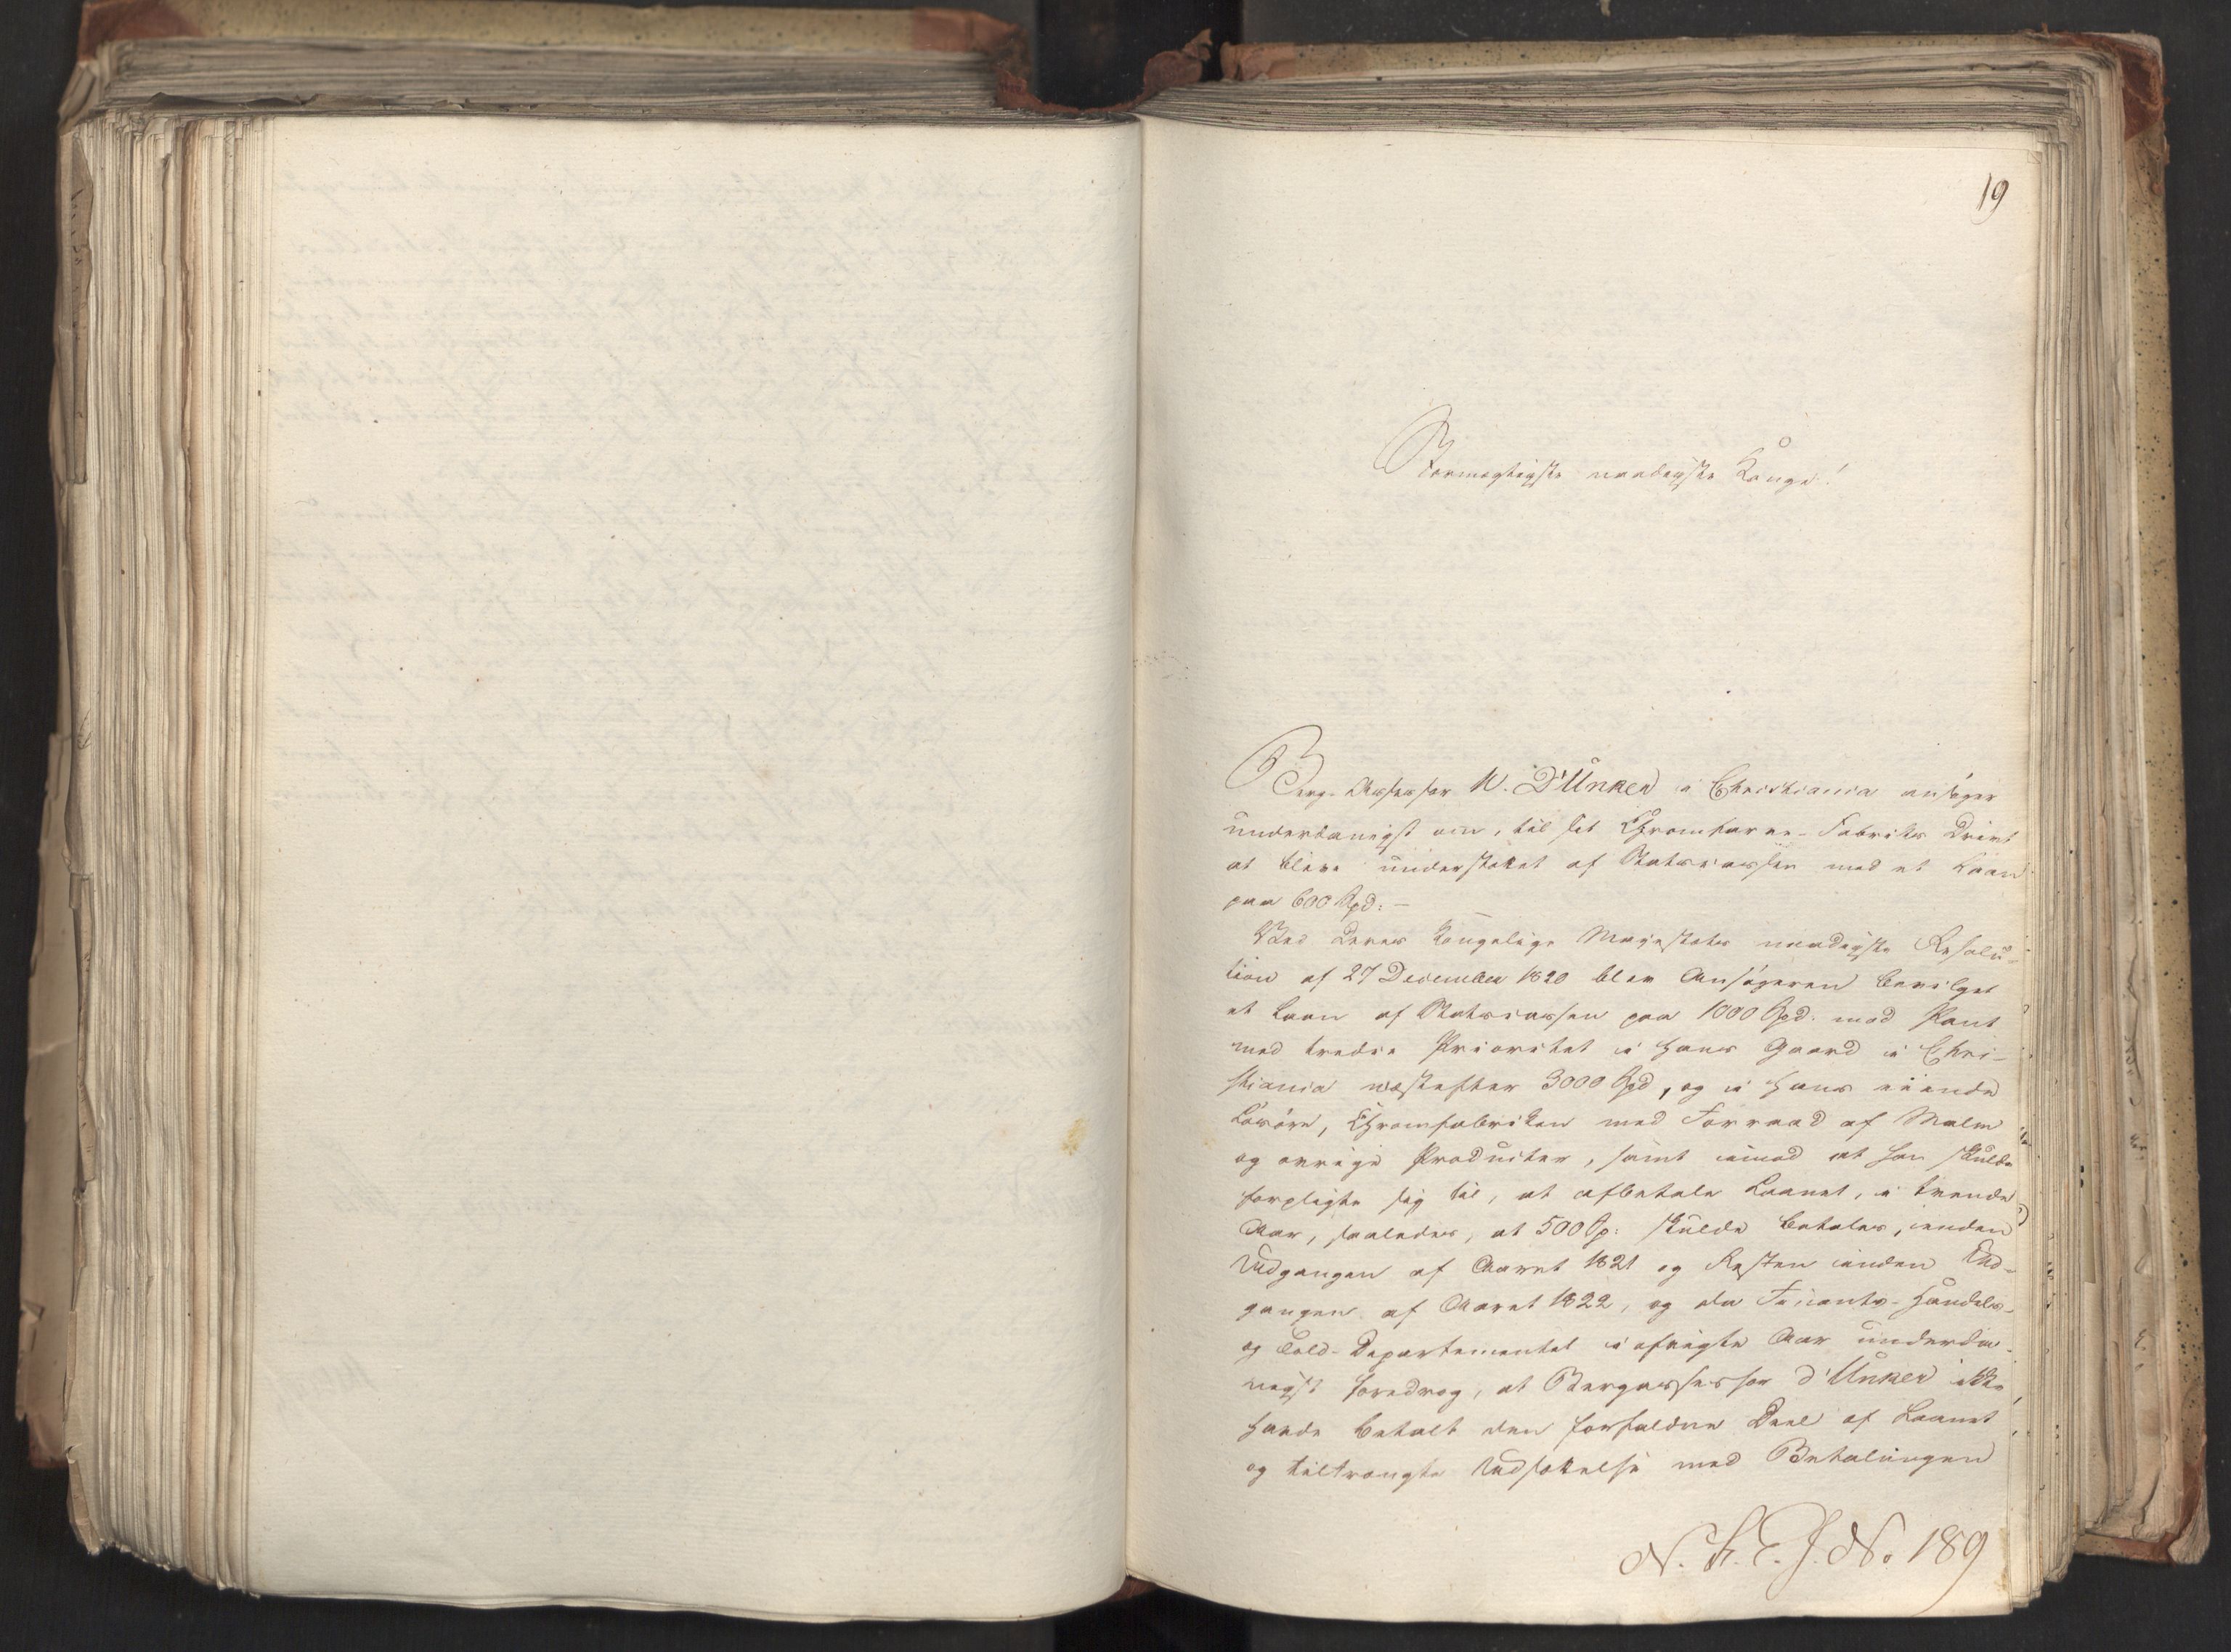 19
Stormægtigste naadigste Konge!
Berg-Assessor W. D'Unker i Christiania ansøger
underdanigst om, til sit Chromfarve-Fabriks Drivt
at blive understøttet af Statscassen med et Laan
paa 600 Spd: -
Ved Deres Kongelige Majestæts naadigste Resolu-
tion af 27 December 1820 blev Ansøgeren bevilget
et Laan af Statscassen paa 1000 Spd. mod Pant
med tredie Prioritet i hans Gaard i Chri-
stiania næstefter 3000 Spd, og i hans eiende
Løsøre, Chromfabriken med Forraad af Malm
og øvrige Producter, samt imod at han skulde
forpligte sig til, at afbetale Laanet, i tvende
Aar, saaledes, at 500 Sp: skulde betales, inden
Udgangen af Aaret 1821 og Resten inden Ud-
gangen af Aaret 1822, og da Finants-Handels-
og Told-Departementet i afvigte Aar underda-
nigst foredrog, at Bergassessor d'Unker ikke
havde betalt den forfaldne Deel af Laanet
og tiltrængte Udsættelse med Betalingen
N. S. E. J. No 189